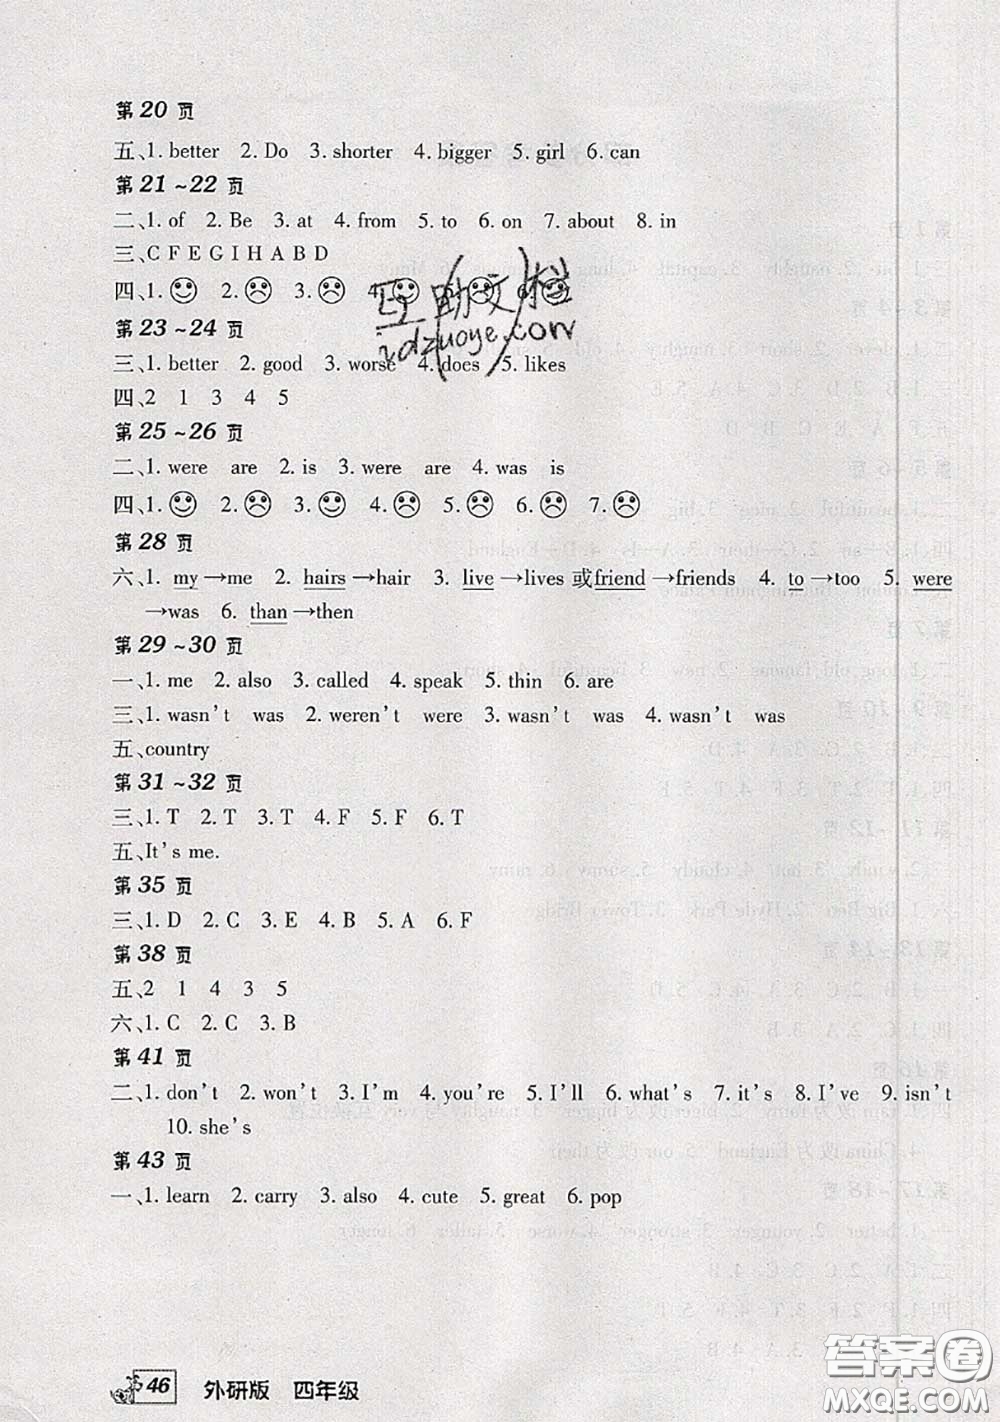 第20页
五、1. better 2. Do 3. shorter 4. bigger 5. girl 6. can
第21~22页
二、1. of 2. Be 3. at 4. from 5. to 6. on 7. about 8. in
三、C F E G I H A B D
四、1.☺ 2.☹ 3.☹ 4.☺ 5.☹ 6.☺
互助文档
zdzuoye.com
第23~24页
三、1. better 2. good 3. worse 4. does 5. likes
四、2 1 3 4 5
第25~26页
二、1. were are 2. is 3. were are 4. was is
四、1.☺ 2.☹ 3.☺ 4.☹ 5.☹ 6.☹ 7.☹
第28页
六、1. my→me 2. hairs→hair 3. live→lives 或friend→friends 4. to→too 5. were
→was 6. than→then
第29~30页
一、1. me 2. also 3. called 4. speak 5. thin 6. are
三、1. wasn't was 2. weren't were 3. wasn't was 4. wasn't was
五、country
第31~32页
三、1. T 2. T 3. T 4. F 5. F 6. T
五、It's me.
第35页
三、1. D 2. C 3. E 4. B 5. A 6. F
第38页
五、2 1 4 3 5
六、1. C 2. C 3. B
第41页
二、1. don't 2. won't 3. I'm 4. you're 5. I'll 6. what's 7. it's 8. I've 9. isn't
10. she's
第43页
一、1. learn 2. carry 3. also 4. cute 5. great 6. pop
46 外研版 四年级
答案圈
MXQE.COM